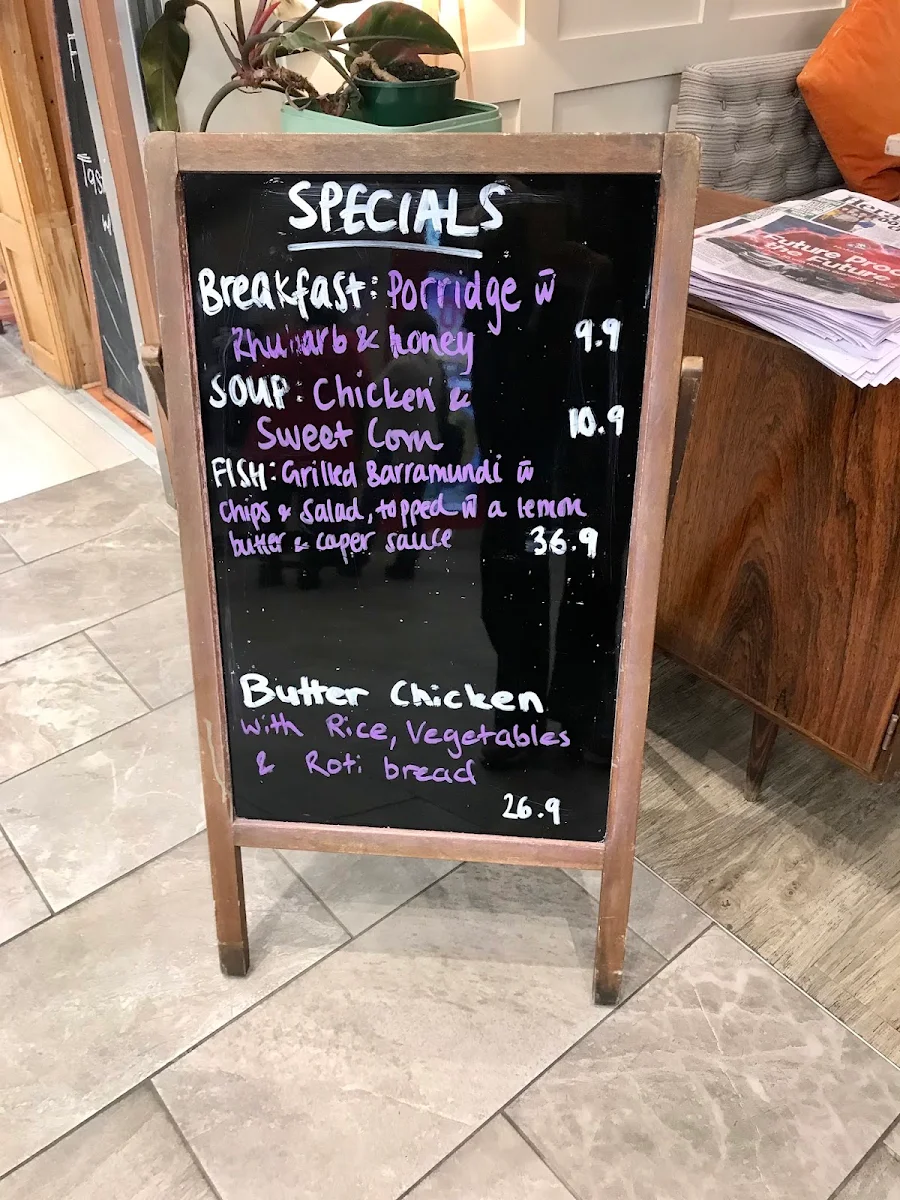 SPECIALS
Breakfast: Porridge w̄
Rhubarb & honey 9.9
SOUP: Chicken &
Sweet Corn 10.9
FISH: Grilled Barramundi w̄
chips & salad, topped w̄ a lemon
butter & caper sauce 36.9
Butter Chicken
with Rice, Vegetables
& Roti bread
26.9
Future
the Future